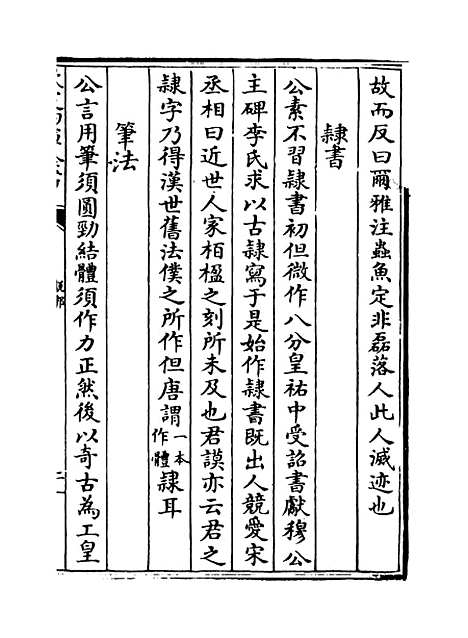 故而反曰爾雅注蟲魚定非磊落人此人滅迹也
隸書
公素不習隸書初但微作八分皇祐中受詔書獻穆公
主碑李氏求以古隸寫于是始作隸書既出人競愛宋
丞相曰近世人家栢楹之刻所未及也君謨亦云君之
隸字乃得漢世舊法僕之所作但唐謂一本作體隸耳
筆法
公言用筆須圓勁結體須作力正然後以奇古為工皇